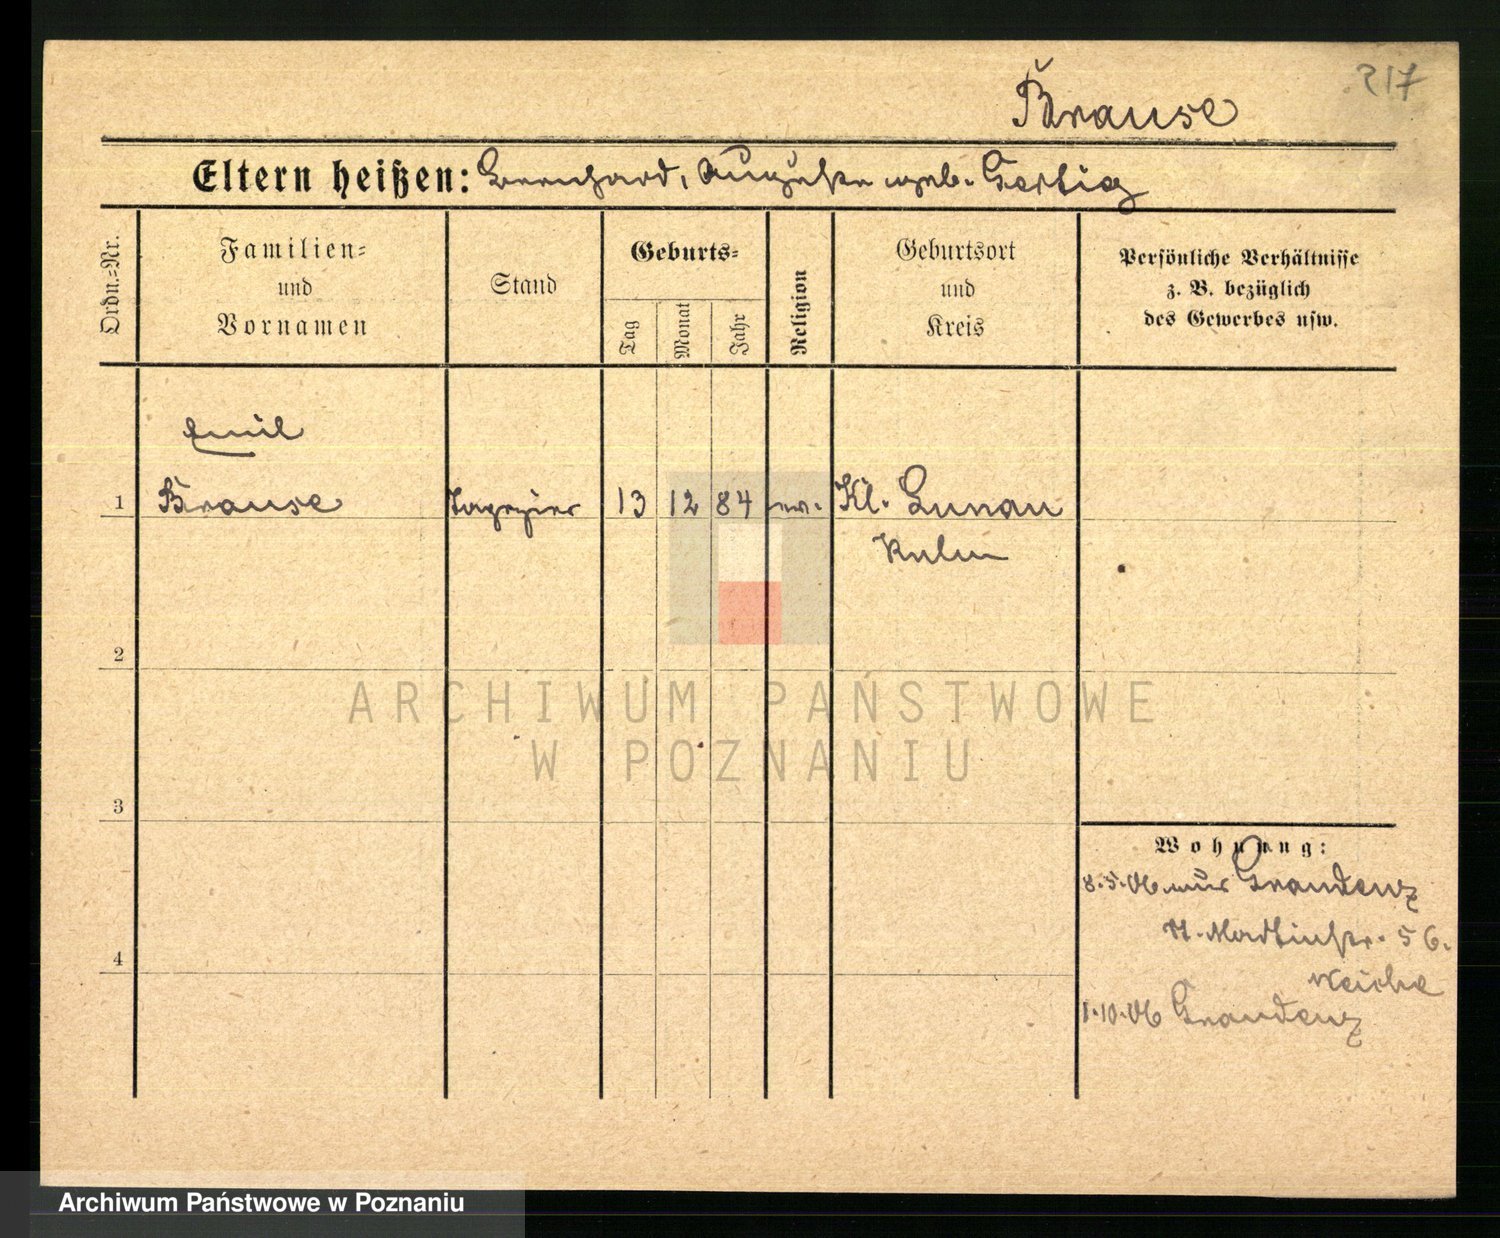 217
Krause
Eltern heißen: Bernhard, Auguste geb. Gertig
Ordn.=Nr.
Familien=
und
Vornamen
Stand
Geburts=
Tag
Monat
Jahr
Religion
Geburtsort
und
Kreis
Persönliche Verhältnisse
z. B. bezüglich
des Gewerbes usw.
Emil
1 Krause Tapezier 13 12 84 ev. Kl. Lunau
Kulm
2
ARCHIWUM PAŃSTWOWE
W POZNANIU
3
Wohnung:
8.5.06 aus Graudenz
5 6.
4
Weiche
1.10.06 Graudenz
Archiwum Państwowe w Poznaniu